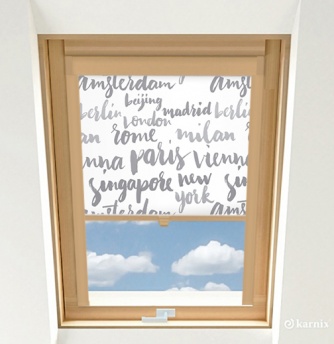 amsterdam ams
beijing
berlin london madrid berli
an rome milan
nna paris vienna
singapore new sin
york
amsterdam ams
karnix